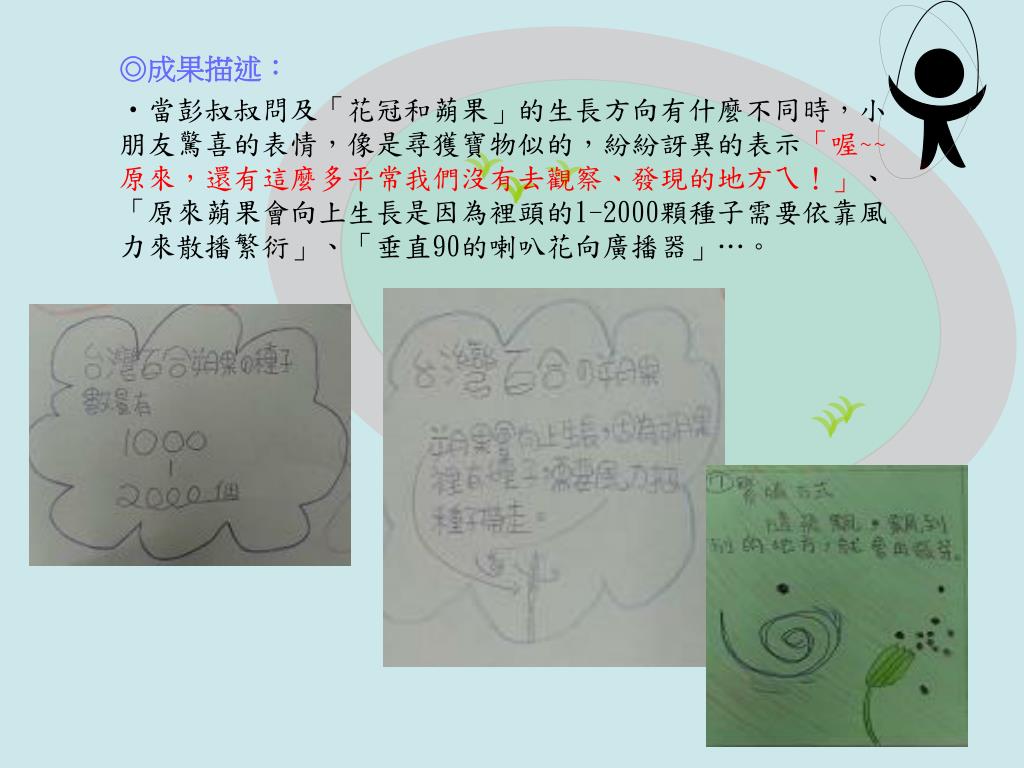 ◎成果描述：
‧當彭叔叔問及「花冠和蒴果」的生長方向有什麼不同時，小
朋友驚喜的表情，像是尋獲寶物似的，紛紛訝異的表示「喔~~
原來，還有這麼多平常我們沒有去觀察、發現的地方ㄟ！」、
「原來蒴果會向上生長是因為裡頭的1-2000顆種子需要依靠風
力來散播繁衍」、「垂直90的喇叭花向廣播器」…。
台灣百合蒴果の種子
數量有
1000
|
2000個
台灣百合の蒴果
蒴果會向上生長，因為蒴果
裡有種子需要風力把
種子帶走。
方式
隨風飄，飄到
別的地方，就會再發芽。